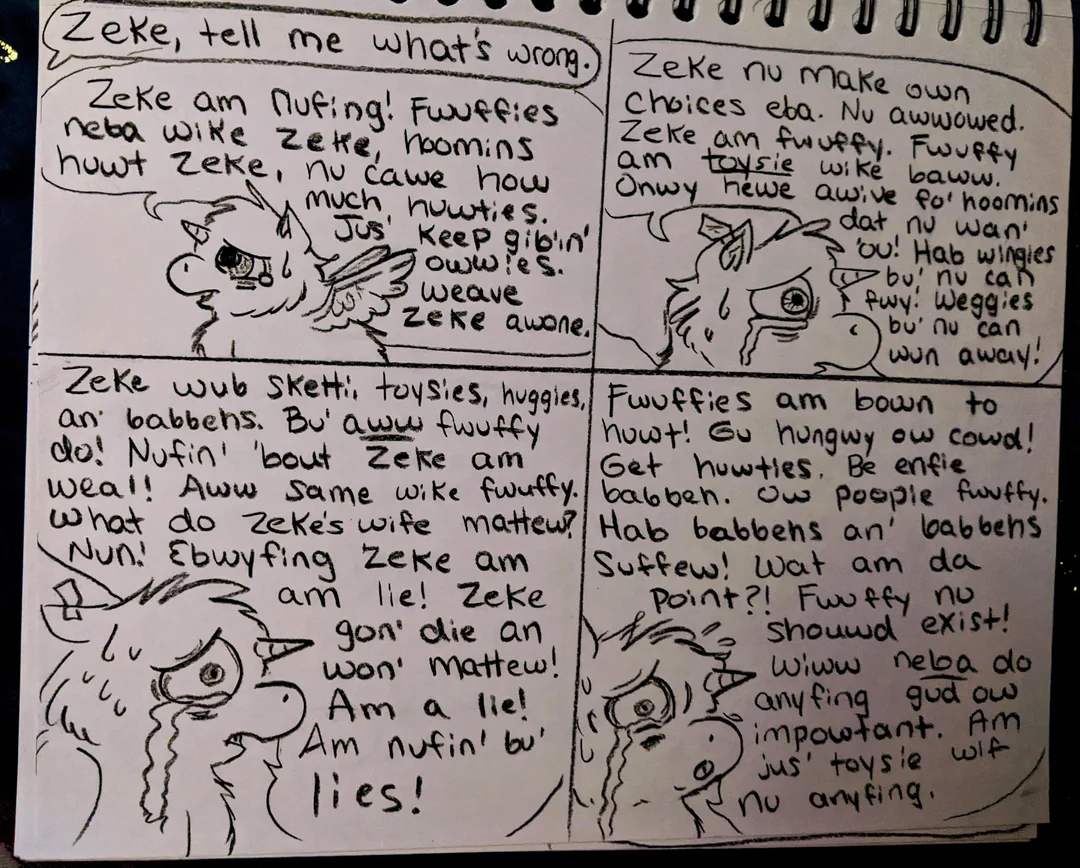 Zeke, tell me what's wrong.
Zeke am nufing! Fwuffies
neba wike Zeke, hoomins
huwt Zeke, nu cawe how
much huwties.
Jus' keep gibin'
owwies.
weave
Zeke awone.
Zeke nu make own
choices eba. Nu awwowed.
Zeke am fwuffy. Fwuffy
am toysie wike baww.
Onwy hewe awive fo' hoomins
dat nu wan'
'ou! Hab wingies
bu' nu can
fwy! Weggies
bu' nu can
wun away!
Zeke wub sketti, toysies, huggies,
an' babbehs. Bu' aww fwuffy
do! Nufin' 'bout Zeke am
weal! Aww same wike fwuffy.
What do Zeke's wife mattew?
Nun! Ebwyfing Zeke am
am lie! Zeke
gon' die an
won' mattew!
Am a lie!
Am nufin' bu'
lies!
Fwuffies am bown to
huwt! Gu hungwy ow cowd!
Get huwties. Be enfie
babbeh. Ow poopie fwuffy.
Hab babbehs an' babbehs
Suffew! Wat am da
point?! Fwuffy nu
shouwd exist!
Wiww neba do
anyfing gud ow
impowtant. Am
jus' toysie wif
nu anyfing.